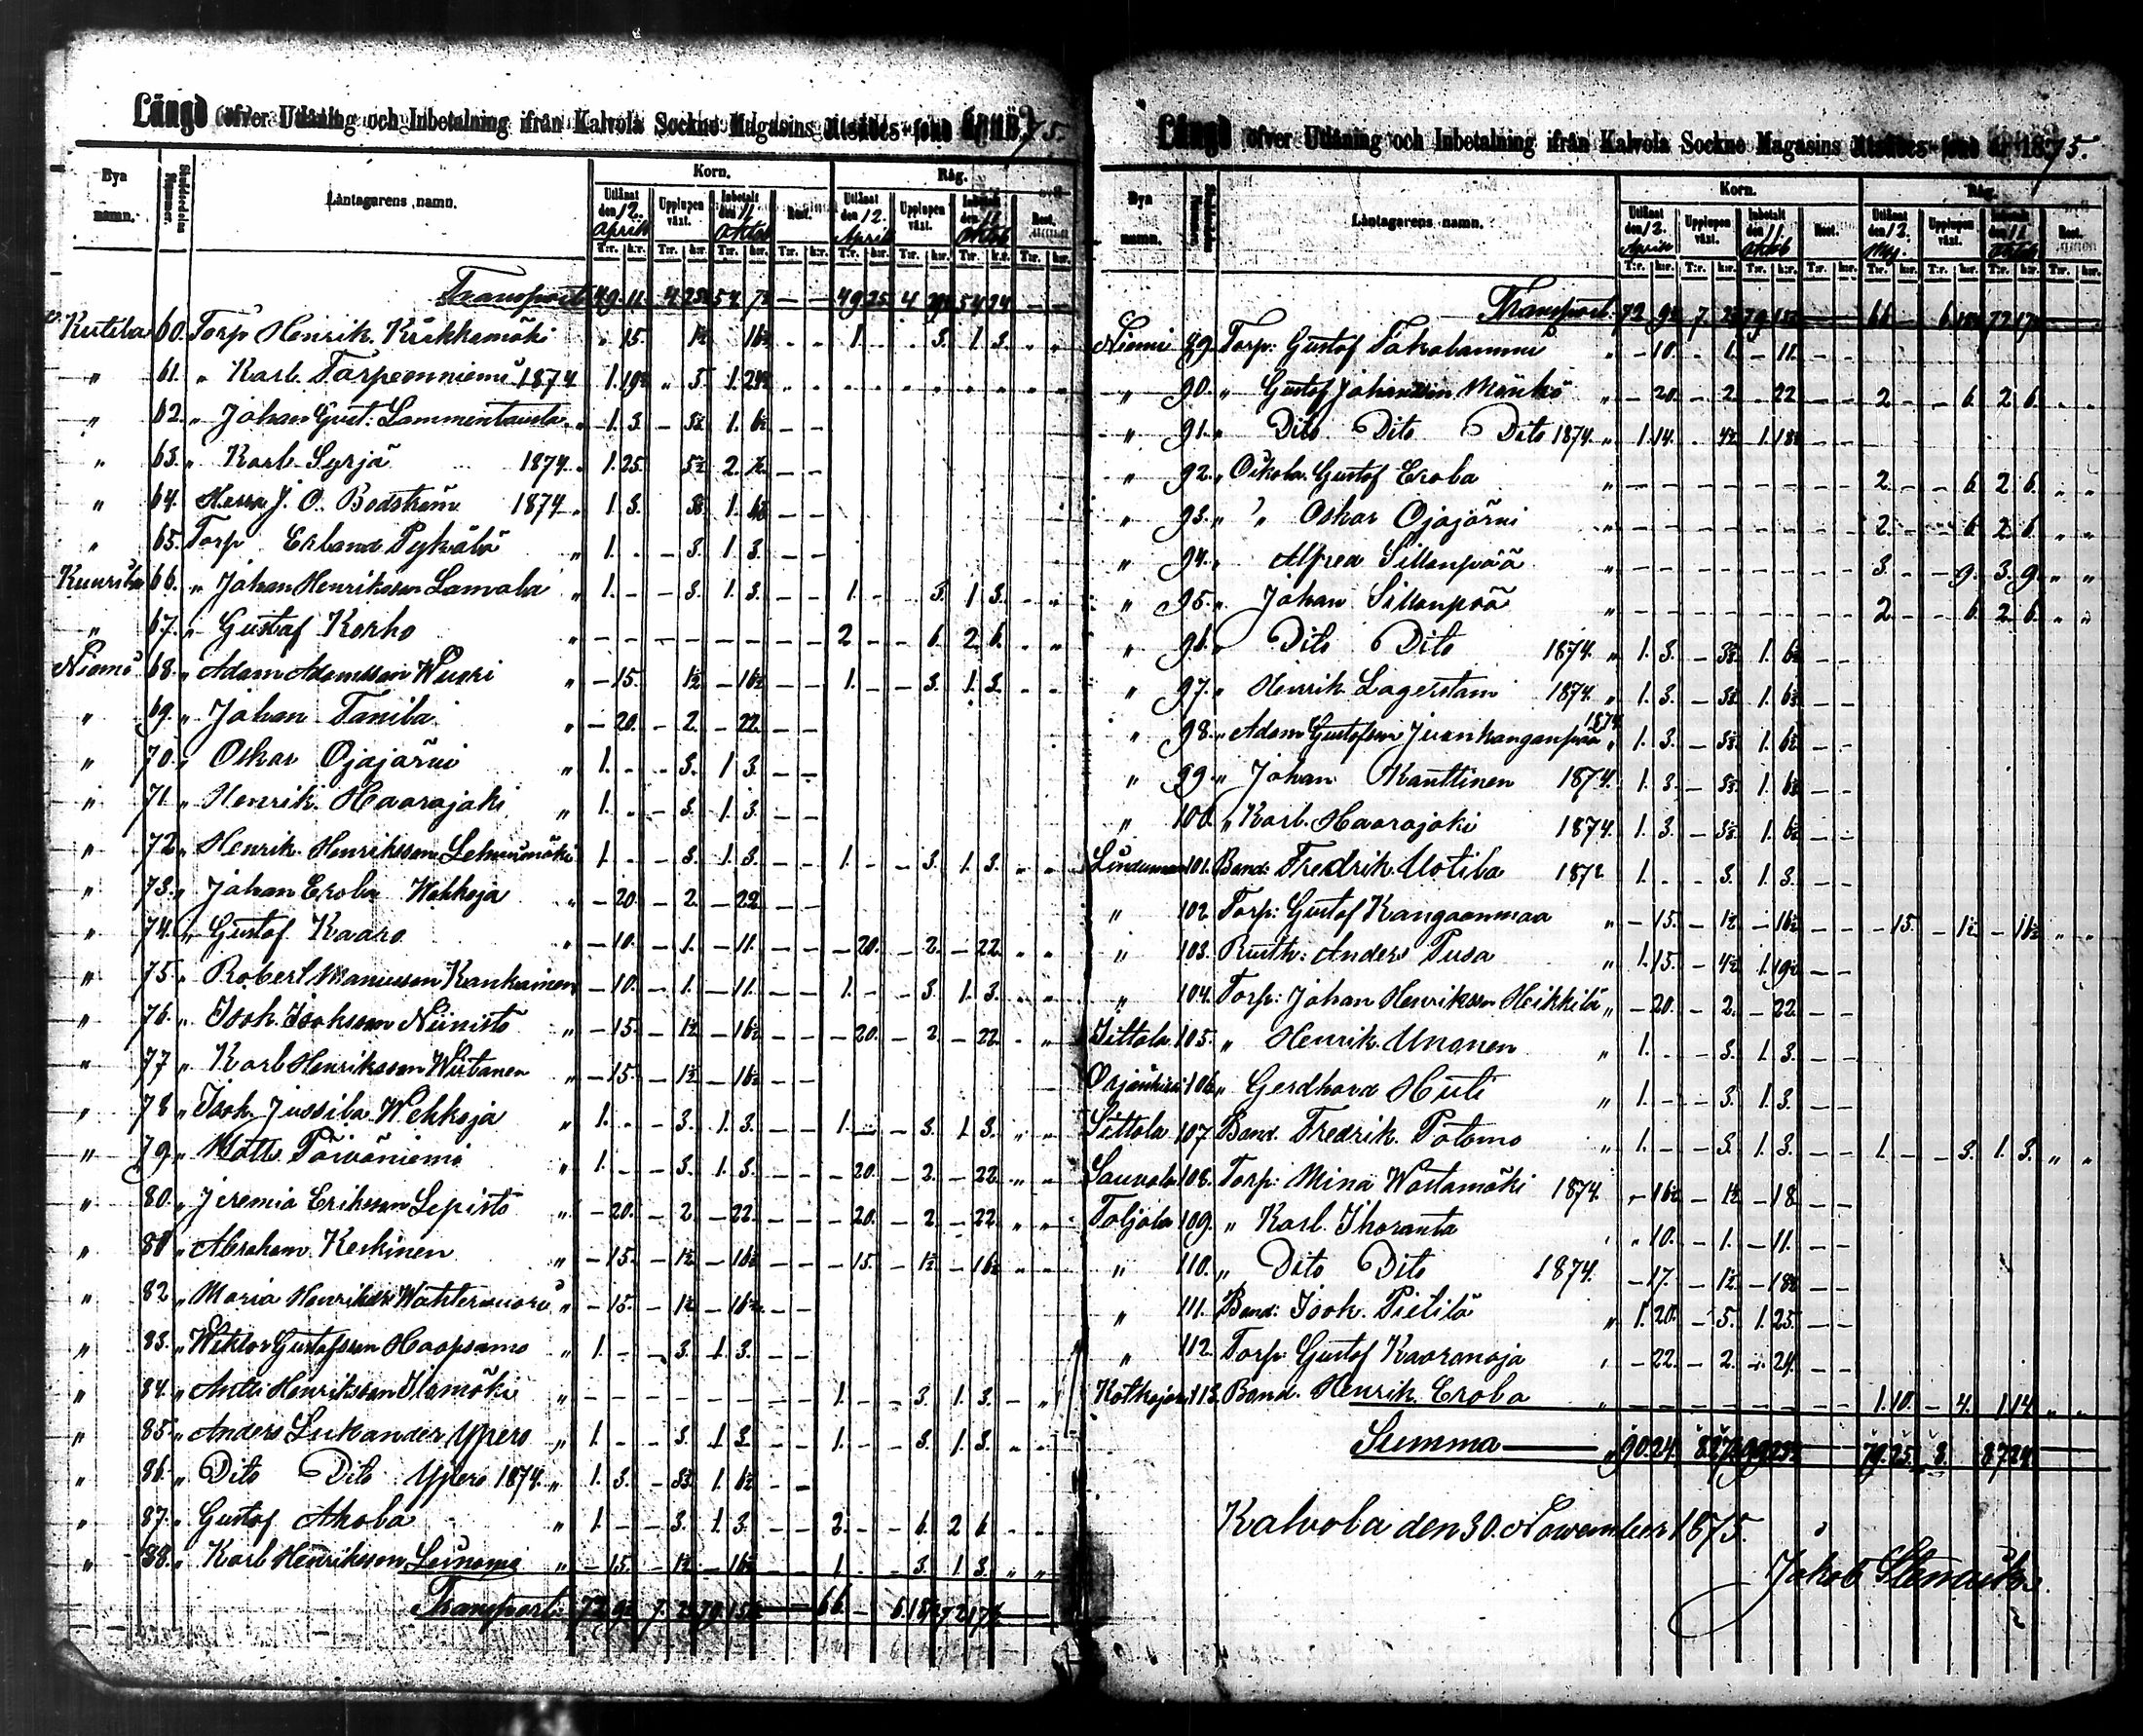 Längd öfver Utlåning och Inbetalning ifrån Kalvola Sockne Magasins Utsädes-fond år 1875.
Bya namn. Låntagarens namn. Korn. Råg.
Utlånat den 12. April Upplupen växt. Inbetalt den 11 Oktob Rest. Utlånat den 12. April Upplupen växt. Inbetalt den 11 Oktob Rest.
T:r. k:r. T:r. k:r. T:r. k:r. T:r. k:r. T:r. k:r. T:r. k:r. T:r. k:r. T:r. k:r.
Transport 49 11 4 54 7½ — — 49 25 4 54 24 — —
Kutila 60. Torp Henrik Kräkkamäki " 15. 1½ 16½ 1. 3. 1. 3.
" 61. " Karl Torpeenniemi 1874 1. 19½ " 5. 1. 24½
" 62. " Johan Gust. Lammentausta " 1. 3. — 3½ 1. 6½ — —
" 63. " Karl Syrjä 1874. 1. 25. 5½ 2. ½ — —
" 64. Herra J. O. Bodström 1874. 1. 3. 3½ 1. 6½ — —
" 65. Torp Erland Pykälä " 1. — 3. 1. 3. — —
66. " Johan Henriksson Lamala " 1. — — 3. 1. 3. — — 1. — 3. 1 3.
" 67. " Gustaf Korho " — — — — — — — — 2 — — 6. 2. 6.
Niemi 68. " Adam Adamsson Wuori " — 15. 1½ — 16½ — — 1. — — 3. 1. 3.
" 69. " Johan Tanila " — 20. — 2. — 22. — —
" 70. " Oskar Ojajärvi " 1. — 3. 1 3. — —
" 71. " Henrik Haarajoki " 1. — 3. 1. 3. — —
" 72. " Henrik Henriksson Lehmusmäki 1. — — 3. 1. 3. — — 1. — — 3. 1. 3.
" 73. " Johan Erola Wehkoja " — 20. — 2. — 22. — —
" 74. " Gustaf Kaaro " — 10. — 1. — 11. — — — 20. — 2. — 22.
" 75. " Robert Kankainen — 10. — 1. — 11. — — 1. — — 3. 1. 3.
" 76. " Isak Isaksson Niinistö " — 15. — 1½ — 16½ — — — 20. — 2. — 22.
" 77 " Karl Henriksson Wirtanen " — 15. — 1½ — 16½ — —
" 78 " Isak Jussila Wehkoja " 1. — — 3. 1. 3. — — 1. — — 3. 1. 3.
" 79 " Matts Päiväniemi " 1. — — 3. 1. 3. — — — 20. — 2. — 22.
" 80. " Jeremia Eriksson Lepistö " — 20. — 2. — 22. — — — 20. — 2. — 22.
" 81 " Abraham Keskinen " — 15. — 1½ — 16½ — — — 15. — 1½ — 16½
" 82 " Maria " — 15. — 1½ — 16½ — —
" 83. " Wiktor Gustafsson Haapsamo " 1. — — 3. 1. 3. — —
" 84. " Antti Henriksson " — — — — — — — — 1. — — 3. 1. 3.
" 85. " Anders Lukander Ypero " 1. — — 3. 1. 3. — — 1. — — 3. 1. 3.
" 86. " Dito Dito Ypero 1874. " 1. 3. — 3½ 1. 6½ — —
" 87. " Gustaf Ahola " 1. — — 3. 1. 3. — — 2. — — 6. 2 6.
" 88. " Karl Henriksson " — 15. — 1½ — 16½ — — 1. — — 3. 1. 3.
Transport 72. 9½ 7. 79. 66. — 6.
Längd öfver Utlåning och Inbetalning ifrån Kalvola Sockne Magasins Utsädes-fond år 1875.
Bya namn. Låntagarens namn. Korn. Råg.
Utlånat den 12. April Upplupen växt. Inbetalt den 11 Oktob Rest. Utlånat den 12. Maj. Upplupen växt. Inbetalt den 11 Oktob Rest.
T:r. k:r. T:r. k:r. T:r. k:r. T:r. k:r. T:r. k:r. T:r. k:r. T:r. k:r. T:r. k:r.
Transport. 72 9½ 7. 79. 66 — 6.
Niemi 89. Torp: Gustaf " — 10. — 1. — 11. — —
" 90. " Gustaf Johansson " — 20. — 2. — 22 — — 2. — — 6. 2. 6.
" 91. " Dito Dito Dito 1874. " 1. 14. — 4½ 1. 18½ — —
" 92. " Oikola Gustaf Erola " — — — — — — — — 2. — — 6. 2. 6.
" 93. " " Oskar Ojajärvi " — — — — — — — — 2. — — 6. 2. 6.
" 94. " Alfred Sillanpää " — — — — — — — — 3. — — 9. 3. 9.
" 95. " Johan Sillanpää " — — — — — — — — 2. — — 6. 2. 6.
" 96. " Dito Dito 1874. " 1. 3. — 3½ 1. 6½ — —
" 97. " Henrik Lagerstam 1874. " 1. 3. — 3½ 1. 6½ — —
" 98. " Adam Gustafsson 1874 " 1. 3. — 3½ 1. 6½ — —
" 99. " Johan Kanttinen 1874. 1. 3. — 3½ 1. 6½ — —
" 100. " Karl Haarajoki 1874. 1. 3. — 3½ 1. 6½ — —
101. Bond: Fredrik Uotila 1. — — 3. 1. 3. — —
" 102. Torp: Gustaf Kangaanmaa " — 15. — 1½ — 16½ — — — 15. — 1½ — 16½
" 103. Rusth: Anders Pusa " 1. 15. — 4½ 1. 19½ — —
" 104. Torp: Johan Henriksson Heikkilä " — 20. — 2. — 22. — —
Sittala 105. " Henrik Unonen " 1. — — 3. 1. 3. — —
106. " Gerdhard Huti " 1. — — 3. 1. 3. — —
Sittala 107. Bond. Fredrik Potomo " 1. — — 3. 1. 3. — — 1. — — 3. 1. 3.
Sauvala 108. Torp: Mina Wartamäki 1874. — 16½ — 1½ — 18 — —
Taljala 109. " Karl Ihoranta " 10. — 1. — 11. — —
" 110. " Dito Dito 1874. — 17. — 1½ — 18½ — —
" 111. Bond: Isak Pietilä " 1. 20. — 5. 1. 25. — —
" 112. Torp: Gustaf Kaaranoja " — 22. — 2. — 24. — —
113. Bond. Henrik Erola " — — — — — — — — 1. 10. — 4. 1. 14.
Summa " 90. 24. 79. 25. 8. 87 24
Kalvola den 30. November 1875.
Jakob